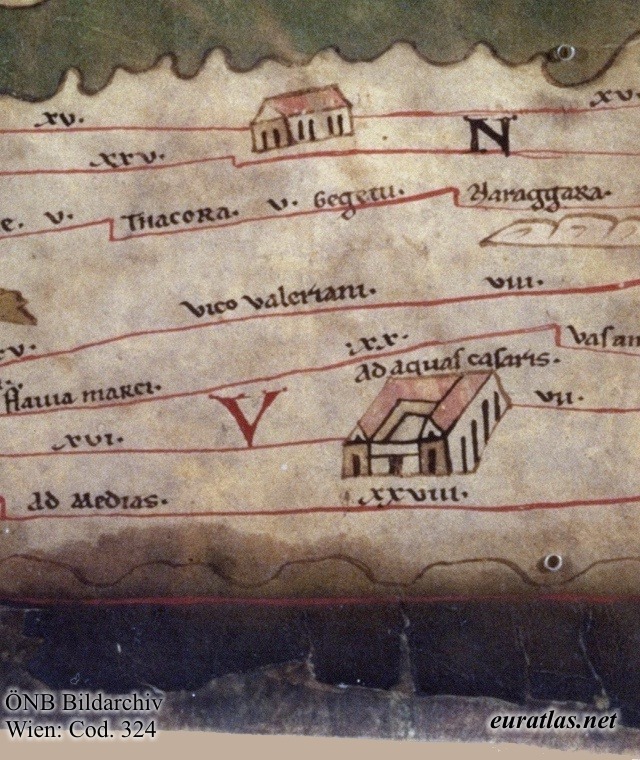 xv.
xv
xxv.
N
e. v. Thacora. v. Gegetu. Naraggara.
vico valeriani. viii.
xv.
xx.
Vasam
ad aquas casaris.
flavia marci.
vii.
V
xvi.
xxviii.
ad Medias.
ÖNB Bildarchiv
Wien: Cod. 324
euratlas.net